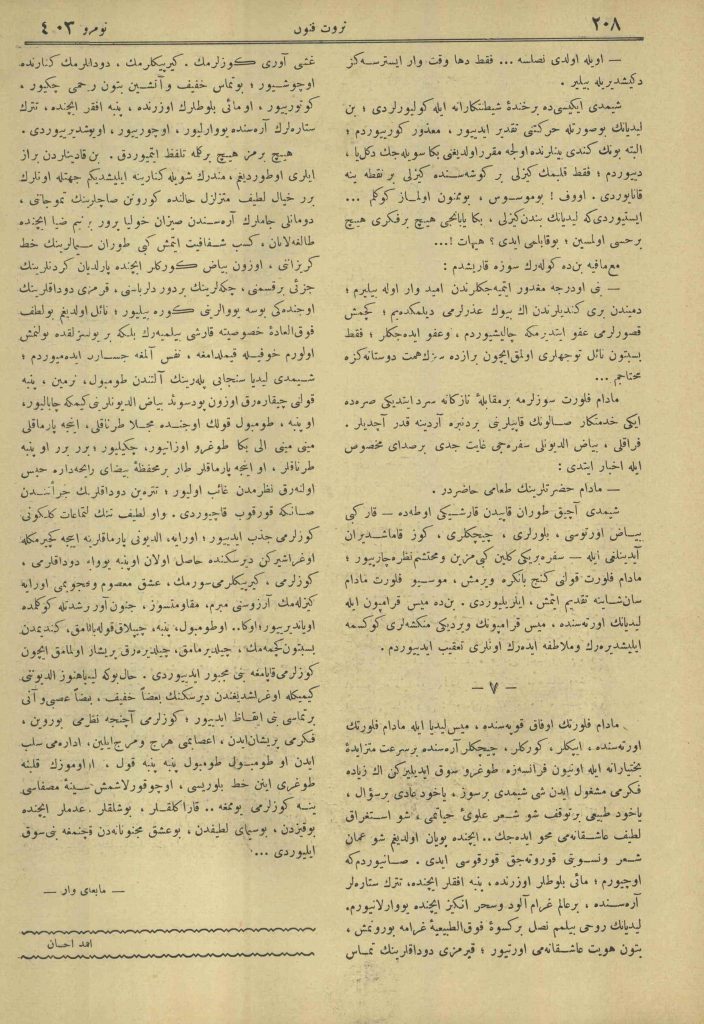 ٢٠٨
ثروت فنون
نومرو ٤٠٣
— اویله اولدی نصلسه ... فقط دها وقت وار ایسترسه‌کز
دکیشدیریله بیلیر .
شیمدی ایکیسی‌ده برخندهٔ شیطنتکارانه ایله کولیورلردی ؛ بن
لیدیانك بوصورتله حرکتنی تقدیر ایدییور ، معذور کورییوردم ؛
البته بونك کندی بینلرنده اولجه مقرر اولدیغنی بکا سویله‌جك دکل‌یا ،
دییوردم ؛ فقط قلبمك کیزلی بر کوشه‌سنده کیزلی بر نقطه ینه
قانایوردی . اووف ! بوموسوس ، بوممنون اولماز کوکلم ...
ایستیوردی‌که لیدیانك بندن‌کیزلی ، بکا یابانجی هیچ برفکری هیچ
برحسی اولمسین ؛ بوقابلمی ایدی ؟ هیهات !...
مع‌مافیه بن‌ده کوله‌رك سوزه قاریشدم :
— بنی اودرجه مغدور ایتمیه‌جکلرندن امید وار اوله بیلیرم ؛
دمیندن بری کندیلرندن اك بیوك عذرلرمی دیلمکده‌یم ؛ کچمش
قصورلرمی عفو ایتدیرمکه چالیشیوردم ، وعفو ایده‌جکلر ؛ فقط
بسبتون نائل توجهلری اولمق‌ایچون برازده سزك همت دوستانه‌کزه
محتاجم ...
مادام فلورت سوزلرمه برمقابلهٔ نازکانه سرد ایتدیکی صره‌ده
ایکی خدمتکار صالونك قاپیلرینی بردنبره آردینه قدر آچدیلر .
فراقلی ، بیاض الدیونلی سفره‌جی غایت جدی برصدای مخصوص
ایله اخبار ایتدی :
— مادام حضرتلرینك طعامی حاضردر .
شیمدی آچیق طوران قاپیدن قارشیکی اوطه‌ده — قارکبی
بیاض اورتوسی ، بللورلری ، چیچکلری ، کوز قاماشدیران
آیدینلغی ایله — سفره‌بریکی کلین کبی‌مزین ومحتشم‌نظره‌چارپییور ؛
مادام فلورت قولنی کنج بانکره ویرمش ، موسیو فلورت مادام
سان‌شاینه تقدیم ایتمش ، ایلریلیوردی . بن‌ده میس قرامپون ایله
لیدیانك اورته‌سنده ، میس قرامپونك ویردیکی منکشه‌لری کوکسمه
ایلیشدیره‌رك وملاطفه ایده‌رك اونلری تعقیب ایدییوردم .
— ٧ —
مادام فلورتك اوفاق قوپه‌سنده ، میس‌لیدیا ایله مادام فلورتك
اورته‌سنده ، ایپکلر ، کورکلر ، چیچکلر آره‌سنده برسرعت متزایدهٔ
بختیارانه ایله اونیون فرانسه‌زه طوغرو سوق ایدیلیرکن اك زیاده
فکرمی مشغول ایدن شی شیمدی برسوز ، یاخود عادی برسؤال ،
یاخود طبیعی برتوقف شو شعر علویٔ حیاتمی ، شو استغراق
لطیف عاشقانه‌می محو ایده‌جك .. ایچنده بویان اولدیغم شو عمان
شعر ونسوینی قوروته‌جق قورقوسی ایدی . صانیوردم‌که
اوچیورم ؛ مائی بلوطلر اوزرنده ، پنبه افقلر ایچنده ، تترك ستاره‌لر
آره‌سنده ، برعالم غرام‌آلود وسحر انکیز ایچنده یووارلانیورم .
لیدیانك روحی بیلمم نصل برکسوهٔ فوق‌الطبیعیهٔ غرامه بورونمش ،
بتون هویت عاشقانه‌می اورتیور ؛ قیرمزی دوداقلرینك تماس
غشی آوری کوزلرمك . کیرپیکلرمك ، دوداقلرمك کنارنده
اوچوشیور ؛ بوتماس خفیف وآتشین بتون روحمی چکیور ،
کوتورییور ، اومائی بلوطلرك اوزرنده ، پنبه افقلر ایچنده ، تترك
ستاره‌لرك آره‌سنده یووارلیور ، اوچورییور ، اویوشدیرییوردی .
هیچ برمز هیچ برکله تلفظ ایتمیوردق . بن قادینلردن براز
ایلری اوطوردیغم ، مندرك شویله کنارینه ایلیشدیکم جهتله اونلرك
برر خیال لطیف متزلزل حالنده کورونن صاچلرینك تموجاتی ،
دومانلی جاملرك آره‌سندن صیزان خولیا پرور برنیم ضیا ایچنده
طالغه‌لانان ، کسب شفافیت ایتمش کبی طوران سیمالرینك خط
کریزانی ، اوزون بیاض کورکلر ایچنده پارلدایان کردنلرینك
جزئی برقسمنی ، چکه‌لرینك بردور دلرباسنی ، قرمزی دوداقلرینك
اوجنده‌کی بوسه یووالرینی کوره بیلیور ؛ نائل اولدیغم بولطف
فوق‌العادهٔ خصوصیته قارشی بیلمیه‌رك بلکه بر یولسزلقده بولنمش
اولورم خوفیله قیملدامغه ، نفس آلمغه جسارت ایده‌میوردم ؛
شیمدی لیدیا سنجابی پله‌رینك آلتندن طومبول ، نرمین ، پنبه
قولنی چیقاره‌رق اوزون پودسوئد بیاض الدیونلرنی کیمکه چابالیور ،
او پنبه ، طومبول قولك اوجنده مجلا طرناقلی ، اینجه پارماقلی
مینی مینی الی بکا طوغرو اوزانیور ، چکیلیور ؛ برر برر او پنبه
طرناقلر ، او اینجه پارماقلر طار برمحفظهٔ بیضای رایحه‌داره حبس
اولنه‌رق نظرمدن غائب اولیور ؛ تتره‌ین دوداقلرمك جرأتندن
صانکه قورقوب قاچیوردی . واو لطیف تنك لتماعات کلکونی
کوزلرمی جذب ایدییور ؛ اورایه ، الدیونی پارماقلرینه اینجه کچیرمکله
اوغراشیرکن دیرسکنده حاصل اولان اوپنبه یووایه دوداقلرمی ،
کوزلرمی ، کیرپیکلرمی سورمك ، عشق معصوم ومحجوبمی اورایه
کیزله‌مك آرزوسنی مبرم ، مقاومتسوز ، جنون‌آور رشدتله کوکلمده
اویاندیرییور ؛ اوکا.. اوطومبول ، پنبه ، چیپلاق‌قوله‌باقامق ، کندیمدن
بسبتون کچمه‌مك ، چیلدیرمامق ، چیلدیره‌رق پریشان اولمامق ایچون
کوزلرمی قاپامغه بنی مجبور ایدییوردی . حال‌بوکه لیدیاهنوز الدیوننی
کیمکله اوغراشدیغندن دیرسکنك بعضاً خفیف ، بعضاً عصبی‌وآنی
برتماسی بنی ایقاظ ایدییور ؛ کوزلرمی آچنجه نظرمی بوروین ،
فکرمی پریشان‌ایدن ، اعصابمی هرج ومرج‌ایلین ، اداره‌می سلب
ایدن او طومبول طومبول پنبه پنبه قول ، اوموزك قلبنه
طوغری اینن خط بللوریسی ، اوچوقورلاشمش سینهٔ مصفاسی
ینه کوزلرمی یوممغه .. قارا کلقلر ، بوشلقلر ، عدملر ایچنده
بوقیزدن ، بوسیمای لطیفدن ، بوعشق مجنونانه‌دن قچنمغه بنی‌سوق
ایلیوردی ...
— مابعدی وار —
احمد احسان